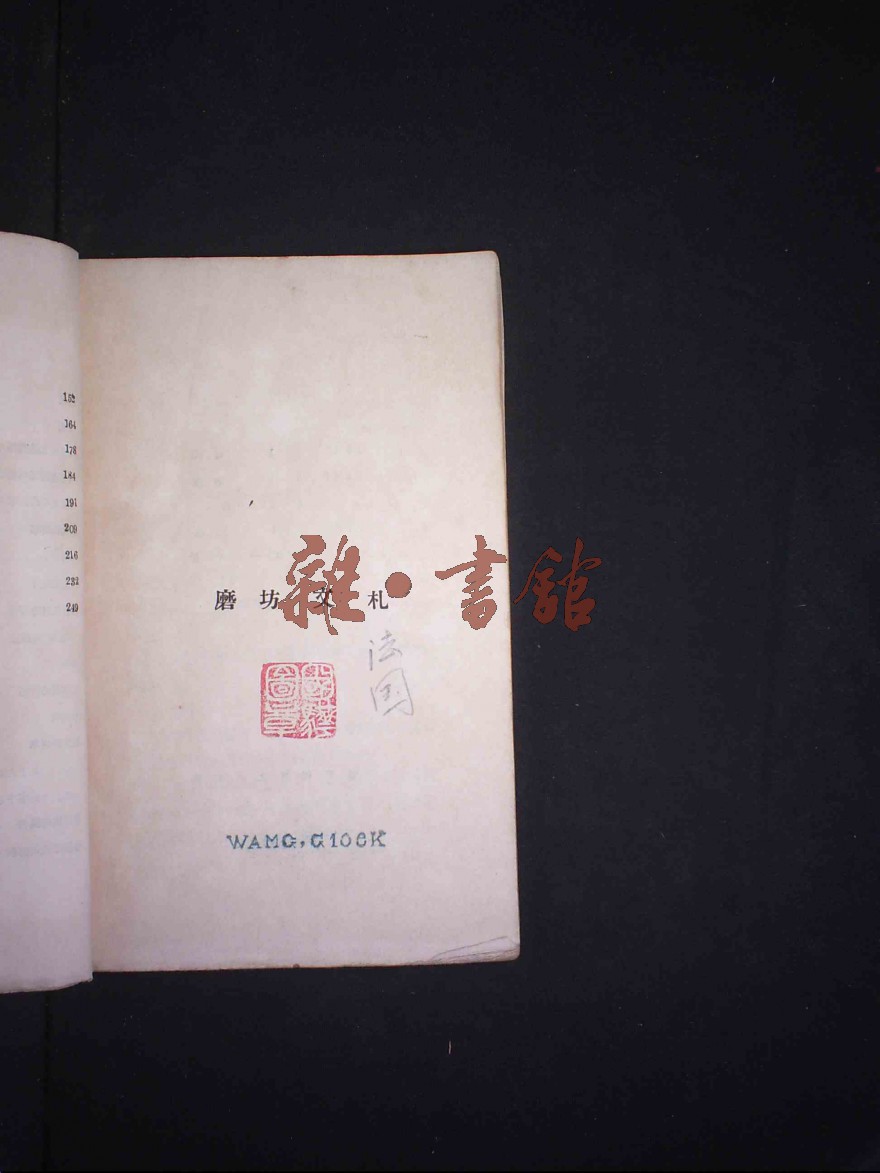 152
164
178
184
191
209
216
232
249
磨坊文札
雜·書館
法国
WAMG,G106K